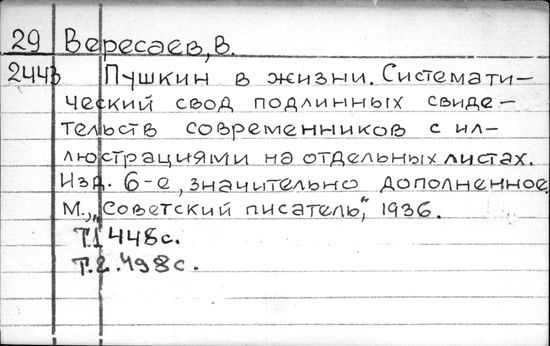 29 Вересаев, В.
2443 Пушкин в жизни. Системати-
ческий свод подлинных свиде-
тельств современников с ил-
люстрациями на отдельных листах.
Изд. 6-е, значительно дополненное
М., „Советский писатель," 1936.
Т.1 448с.
Т.2. 498с.